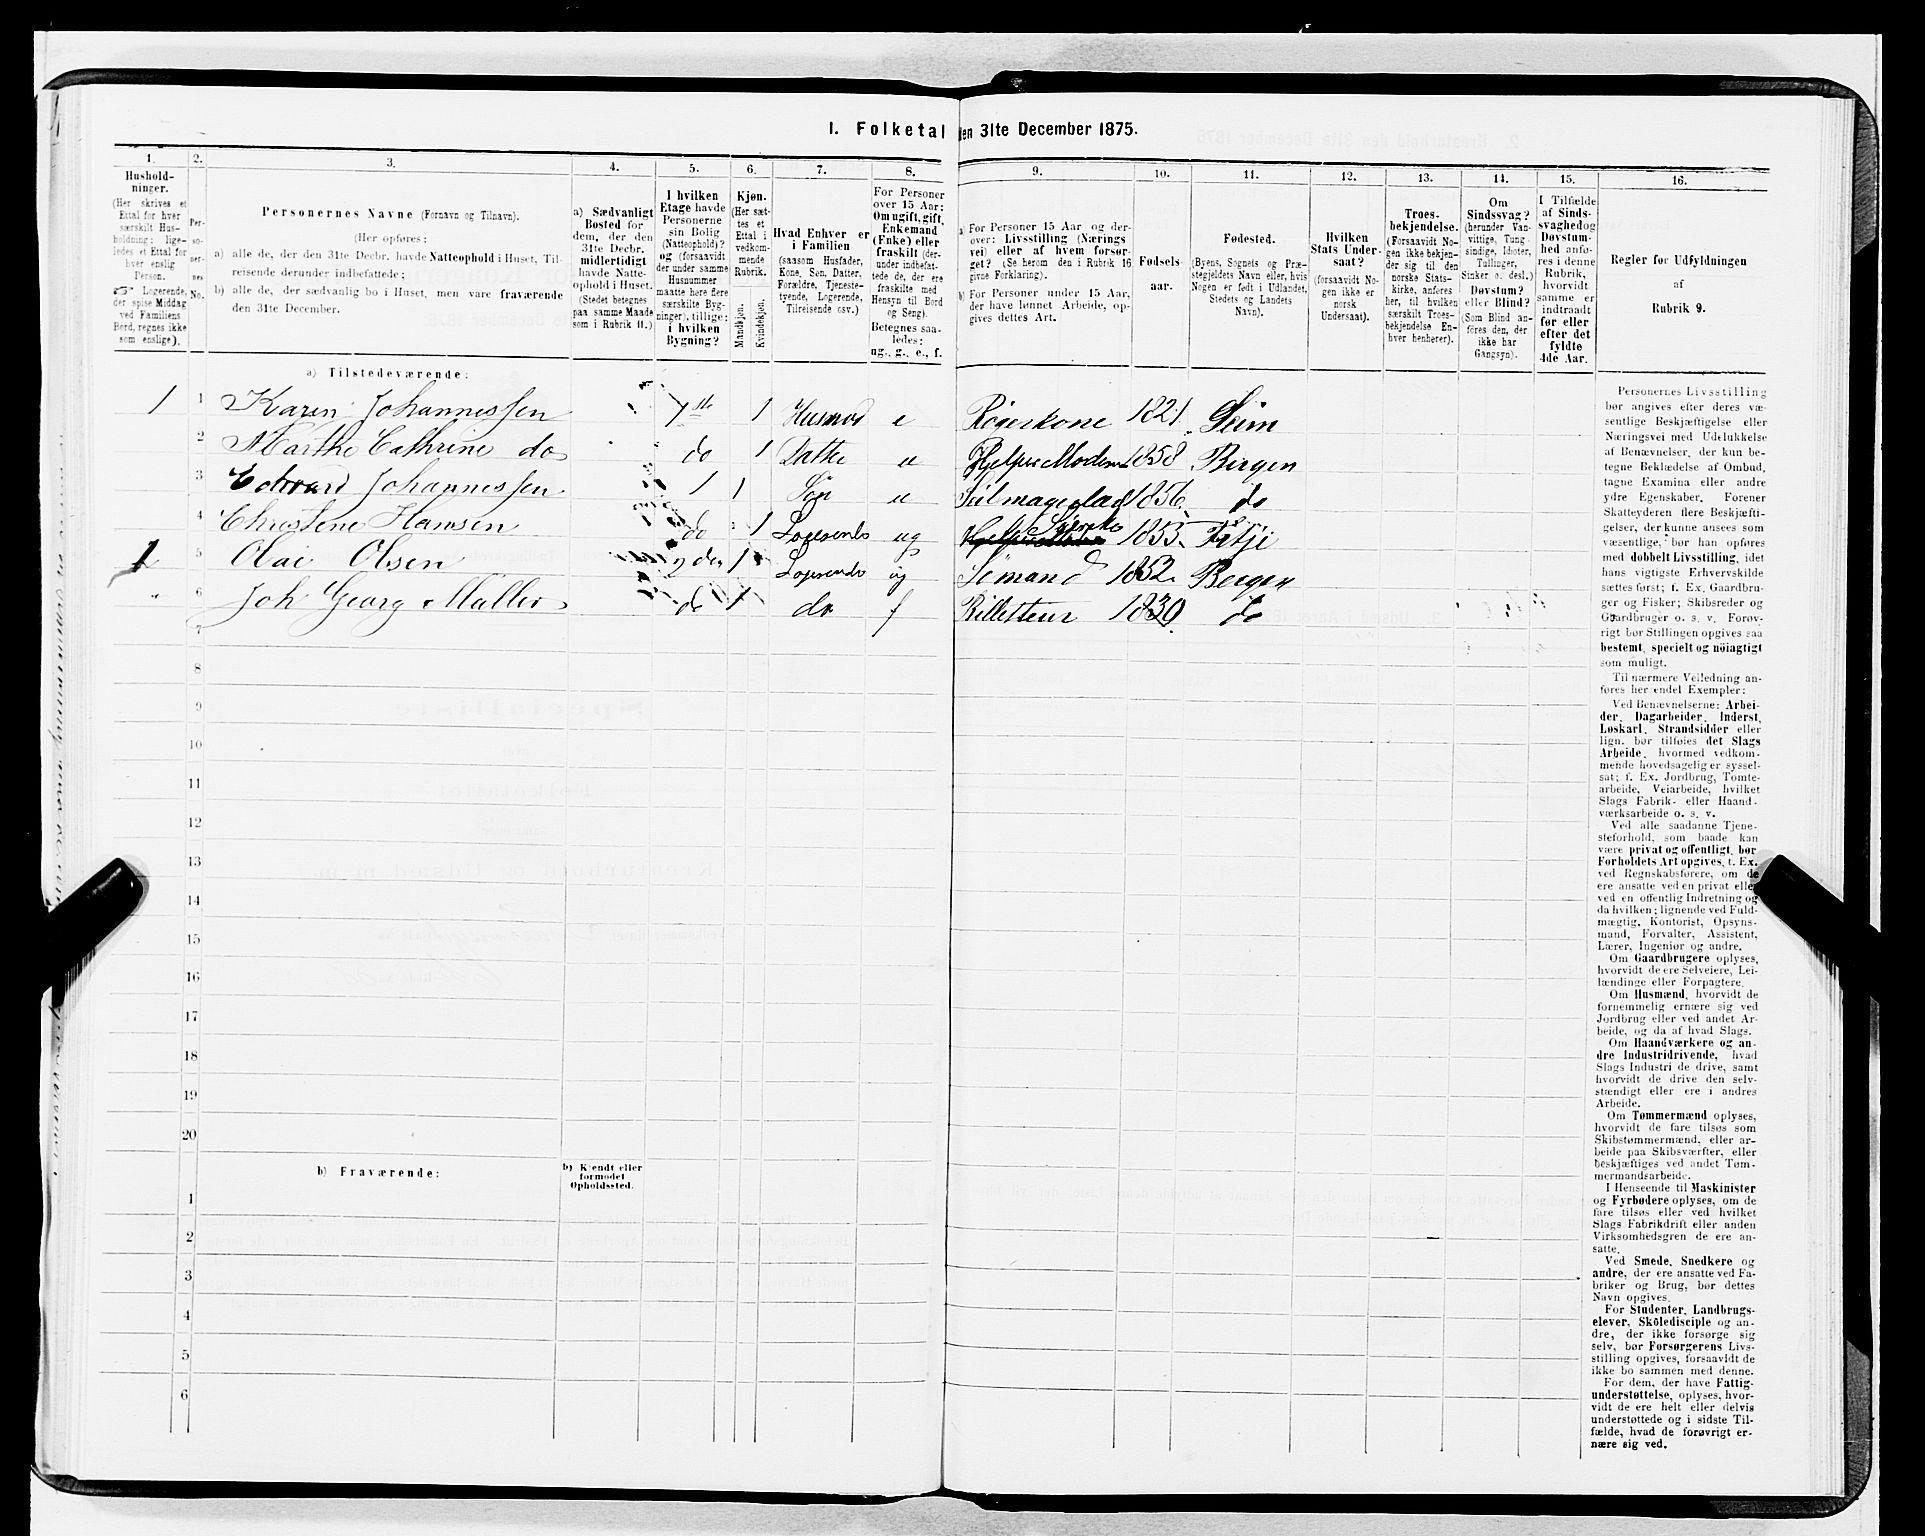 1. Folketal den 31te December 1875.
1.
Hushold-
ninger.
(Her skrives et
Ettal for hver
særskilt Hus-
holdning; lige-
ledes et Ettal for
hver enslig
Person.
☞ Logerende,
der spise Middag
ved Familiens
Bord, regnes ikke
som enslige).
2.
Per-
so-
ner-
nes
No.
3.
Personernes Navne (Fornavn og Tilnavn).
(Her opføres:
a) alle de, der den 31te Decbr. havde Natteophold i Huset, Til-
reisende derunder indbefattede;
b) alle de, der sædvanlig bo i Huset, men vare fraværende
den 31te Decbr.
4.
a) Sædvanligt
Bosted for
dem, der den
31te Decbr.
midlertidigt
havde Natte-
ophold i Huset.
(Stedet betegnes
paa samme Maade
som i Rubrik 11.)
5.
I hvilken
Etage havde
Personerne
sin Bolig
(Natteophold)?
og (forsaavidt
der under samme
Husnummer
maatte høre flere
særskilte Byg-
ninger), tillige:
i hvilken
Bygning?
6.
Kjøn.
(Her sæt-
tes et
Ettal i
vedkom-
mende
Rubrik.
Mandkjøn.
Kvindekjøn.
7.
Hvad Enhver er
i Familien
(saasom Husfader,
Kone, Søn, Datter,
Forældre, Tjeneste-
tyende, Logerende,
Tilreisende osv.)
8.
For Personer
over 15 Aar:
Om ugift, gift,
Enkemand
(Enke) eller
fraskilt (der-
under indbefat-
tede de, der ere
fraskilte med
Hensyn til Bord
og Seng).
Betegnes saa-
ledes:
ug., g., e., f.
9.
a) For Personer 15 Aar og der-
over: Livsstilling (Nærings
vei) eller af hvem forsør-
get? (Se herom den i Rubrik 16
givne Forklaring).
b) For Personer under 15 Aar,
der have lønnet Arbeide, op-
gives dettes Art.
10.
Fødsels-
aar.
11.
Fødested.
(Byens, Sognets og Præ-
stegjeldets Navn eller, hvis
Nogen er født i Udlandet,
Stedets og Landets
Navn).
12.
Hvilken
Stats Under-
saat?
(forsaavidt No-
gen ikke er
norsk
Undersaat).
13.
Troes-
bekjendelse.
(Forsaavidt No-
gen ikke bekjen-
der sig til den
norske Stats-
kirke, anføres
her, til hvilken
særskilt Troes-
bekjendelse En-
hver henhører).
14.
Om
Sindssvag?
(herunder Van-
vittige, Tung-
sindige, Idioter,
Tullinger,
Sinker o. desl.)
Døvstum?
eller Blind?
(Som Blind an-
føres den, der
ikke har
Gangsyn).
15.
I Tilfælde
af Sinds-
svaghed og
Døvstum-
hed anfø-
res i denne
Rubrik,
hvorvidt
samme er
indtraadt
før eller
efter det
fyldte
4de Aar.
16.
Regler for Udfyldningen
af
Rubrik 9.
a) Tilstedeværende:
1 1 Karen Johannessen 1ste 1 Husmod e Røgerkone 1821 Seim
2 Marthe Cathrine do do 1 Datter u Hjelper Moderen 1858 Bergen
3 Edvard Johannessen 1 1 Søn u 1856 do
4 Christene Hansen do 1 Logerende ug Syerske 1855 Fitje
1 5 Olai Olsen 2den 1 Logerende ug Sømand 1852 Bergen
" 6 Joh Georg Møller do 1 do f Billetteur 1830 do
7
8
9
10
11
12
13
14
15
16
17
18
19
20
b) Fraværende:
b) Kjendt eller
formodet
Opholdssted.
1
2
3
4
5
6
Personernes Livsstilling
bør angives efter deres væ-
sentlige Beskjæftigelse eller
Næringsvei med Udelukkelse
af Benævnelser, der kun be-
tegne Beklædelse af Ombud,
tagne Examina eller andre
ydre Egenskaber. Forener
Skatteyderen flere Beskjæfti-
gelser, der kunne ansees som
væsentlige, bør han opføres
med dobbelt Livsstilling, idet
hans vigtigste Erhvervskilde
sættes først; f. Ex. Gaardbru-
ger og Fisker; Skibsreder og
Gaardbruger o. s. v. Forøv-
rigt bør Stillingen opgives saa
bestemt, specielt og nöiagtigt
som muligt.
Til nærmere Veiledning an-
føres her endel Exempler:
Ved Benævnelserne: Arbei-
der, Dagarbeider, Inderst,
Løskarl, Strandsidder eller
lign. bør tilføies det Slags
Arbeide, hvormed vedkom-
mende hovedsagelig er syssel-
sat; f. Ex. Jordbrug, Tomte-
arbeide, Veiarbeide, hvilket
Slags Fabrik- eller Haand-
værksarbeide o. s. v.
Ved alle saadanne Tjene-
steforhold, som baade kan
være privat og offentligt, bør
Forholdets Art opgives, f. Ex.
ved Regnskabsførere, om de
ere ansatte ved en privat eller
ved en offentlig Indretning og
da hvilken; lignende ved Fuld-
mægtig, Kontorist, Opsyns-
mand, Forvalter, Assistent,
Lærer, Ingeniør og andre.
Om Gaardbrugere oplyses,
hvorvidt de ere Selveiere, Lei-
lændinge eller Forpagtere.
Om Husmænd, hvorvidt de
fornemmelig ernære sig ved
Jordbrug eller ved andet Ar-
beide, og da af hvad Slags.
Om Haandværkere og an-
dre Industridrivende, hvad
Slags Industri de drive, samt
hvorvidt de drive den selv-
stændigt eller ere i andres
Arbeide.
Om Tømmermænd oplyses,
hvorvidt de fare tilsøs som
Skibstømmermænd, eller ar-
beide paa Skibsværfter, eller
beskjæftiges ved andet Tøm-
mermandsarbeide.
I Henseende til Maskinister
og Fyrbødere oplyses, om de
fare tilsøs eller ved hvilket
Slags Fabrikdrift eller anden
Virksomhedsgren de ere an-
satte.
Ved Smede, Snedkere og
andre, der ere ansatte ved Fa-
briker og Brug, bør dettes
Navn opgives.
For Studenter, Landbrugs-
elever, Skoledisciple og an-
dre, der ikke forsørge sig
selv, bør Forsørgerens Livs-
stilling opgives, forsaavidt de
ikke bo sammen med denne.
For dem, der have Fattig-
understøttelse, oplyses, hvor-
vidt de ere helt eller delvis
understøttede og i sidste Til-
fælde, hvad de forøvrigt er-
nære sig ved.